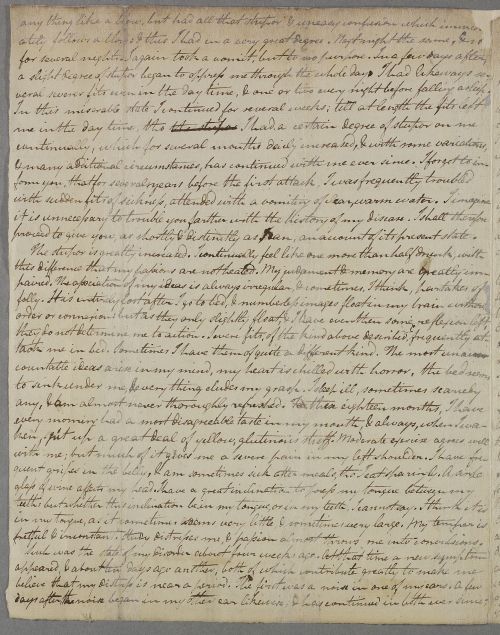 any thing like a blow, but had all that stupor & uneasy confusion which immedi
ately follows a thing & this I had in a very great degree. Next night the same, & so
for several nights. I again took a vomit, but to no purpose. In a few days after,
a slight degree of stupor began to oppress me through the whole day. I had likeways se
veral severe fits even in the day time, & one or two every night before falling asleep.
In this miserable state I continued for several weeks; till at length the fits left
me in the day time, tho I had a certain degree of stupor on me
continually; which for several months decid; increased, & with some variations,
& many additional circumstances, has continued with me ever since. I forgot to in
form you, that for several years before the first attack, I was frequently troubled
with sudden fits of sickness, attended with a vomiting of clear, warm water. I imagine
it is unnecessary to trouble you farther with the history of my disease. I shall therefore
proceed to give you, as shortly & distinctly as I can, an account of its present state.
The stupor is greatly increased. I continually feel like one more than half drunk, with
this difference that my passions are not heated. My judgment & memory are greatly im
paired. The association of my ideas is always irregular, & sometimes, I think, partakes of
folly. It is entirely lost after I go to bed, & numberless images float in my brain without
order or connexion: but as they only slightly float, & I have even then some reflexion left
they do not determine me to action. Severe fits, of the kind above described, frequently at
tack me in bed. Sometimes I have them of quite a different kind. The most unac
countable ideas arise in my mind, my heart is chilled with horror, the bed seems
to sink under me, & every thing eludes my grasp. I sleep ill, sometimes scarcely
any, & am almost never thoroughly refreshed. these eighteen months, I have
every morning had a most disagreeable taste in my mouth, & always, when I wa
ken, put up a great deal of yellow, glutinous stuff. Moderate exercise agrees well
with me; but much of it gives me a severe pain in my left shoulder. I have fre
quent gripes in the belly, & am sometimes sick after meals, tho I eat sparingly. A single
glass of wine affects my head. I have a great inclination to keep my tongue between my
teeth; but whether this inclination be in my tongue, or in my teeth, I cannot say. I think it is
in my tongue, as it sometimes seems very little & sometimes very large. My temper is
fretful & inconstant. distresses me, & passion almost throws me into convulsions.
Such was the state of my disorder about four weeks ago. At that time a new symptom
appeared, & about ten days ago another, both of which contribute greatly to make me
believe that my distress is near a period. The first was a noise in one of my ears. A few
days after the noise began in my other ear likewise, & has continued in both ever since